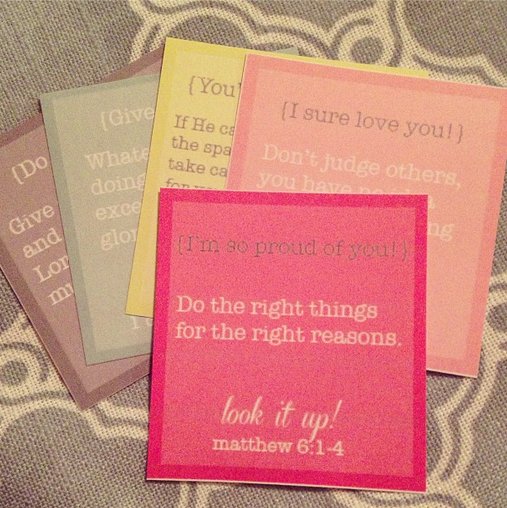 {Do
Give
and
Lor
mu
{Give
Whate
doing
exce
glor
{You'
If He ca
the spa
take ca
{I sure love you!}
Don't judge others,
you have
ng
{I'm so proud of you!}
Do the right things
for the right reasons.
look it up!
matthew 6:1-4